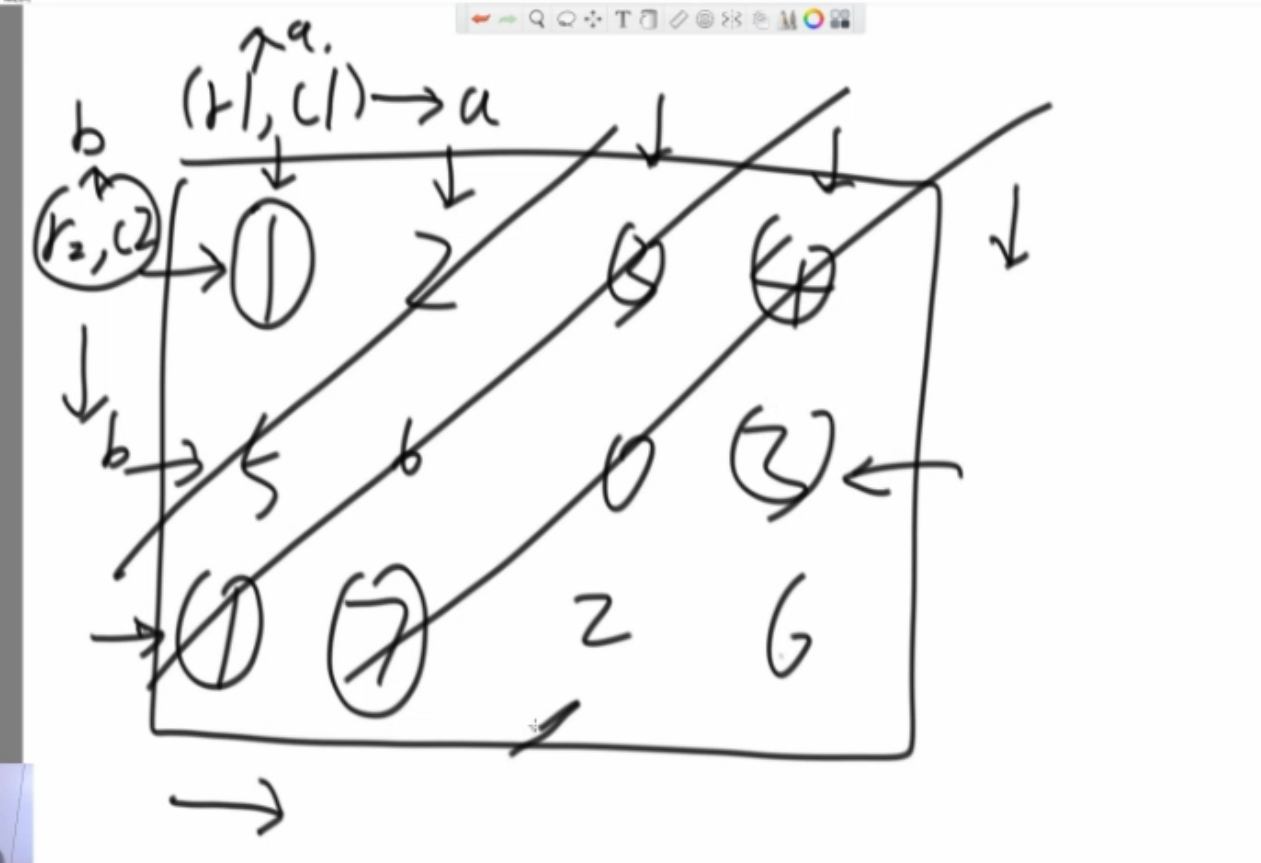 a.
(r1, c1) → a
b
r2, c2
1 2 3 4
b 5 6 0 3
1 7 2 6